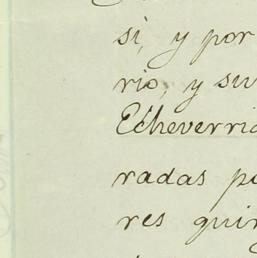 si, y por
rio, y su
Echeverria
radas p
res quin